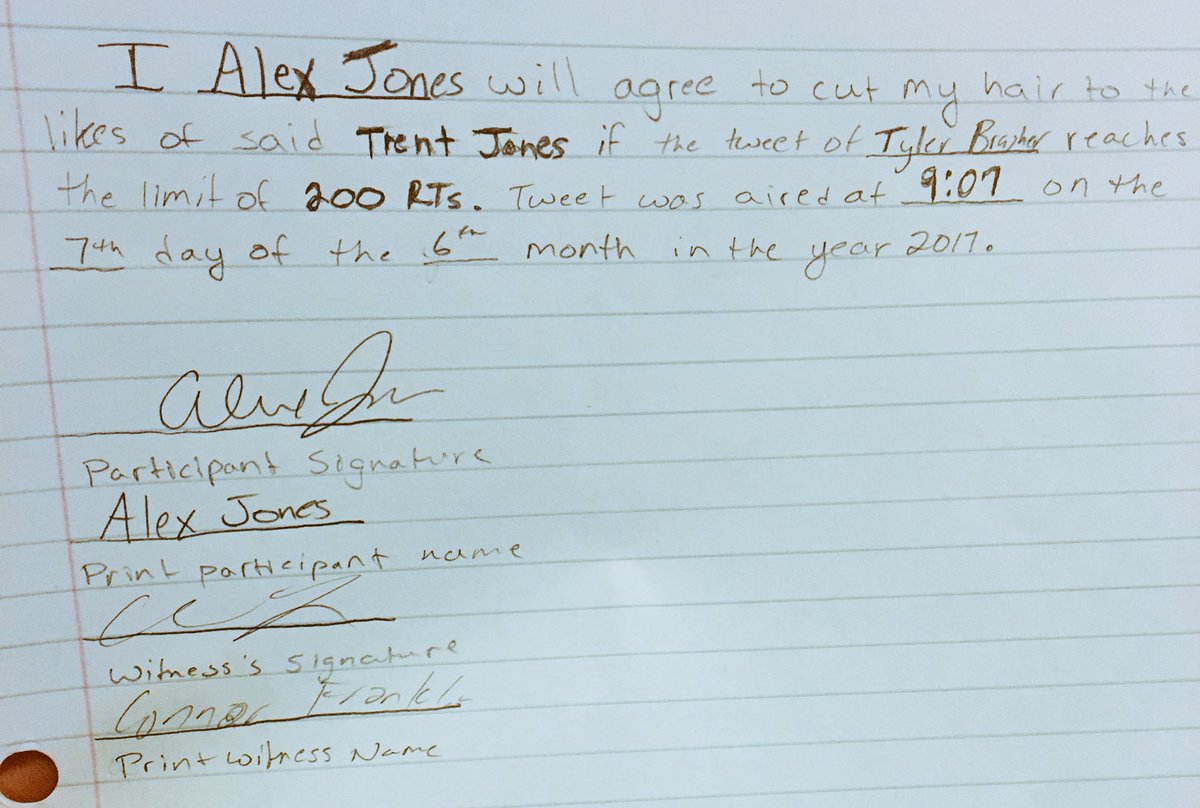 I Alex Jones will agree to cut my hair to the
likes of said Trent Jones if the tweet of Tyler reaches
the limit of 200 RTs. Tweet was aired at 9:07 on the
7th day of the 6th month in the year 2017.
Participant Signature
Alex Jones
Print participant name
Witness's Signature
Connor
Print witness Name